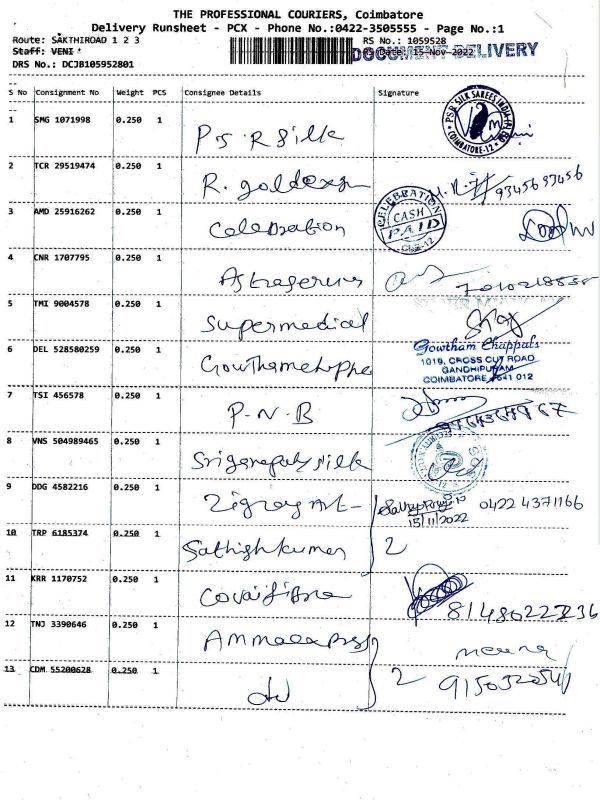 THE PROFESSIONAL COURIERS, Coimbatore
Delivery Runsheet - PCX - Phone No.:0422-3505555 - Page No.:1
Route: SAKTHIROAD 1 2 3 RS No.: 1059528
Staff: VENI RS Date: 15-Nov-2022 DOCUMENT DELIVERY
DRS No.: DCJB105952801
S No Consignment No Weight PCS Consignee Details Signature
1 SMG 1071998 0.250 1 PSR Silk
PSR SILK SAREES INDIA COIMBATORE-12
2 TCR 29519474 0.250 1 R. golden 9345633456
3 AMD 25916262 0.250 1 Celebration
CELEBRATION CASH PAID CBE-12
4 CNR 1707795 0.250 1
5 TMI 9004578 0.250 1 Supermedical
6 DEL 528580259 0.250 1
Gowtham Chappals
1018, CROSS CUT ROAD
GANDHIPURAM
COIMBATORE - 641 012
7 TSI 456578 0.250 1 P-N-B
8 VNS 504989465 0.250 1 Sriganapathy silk
9 DDG 4582216 0.250 1 0422 4371166
15/11/2022
10 TRP 6185374 0.250 1 Sathishkumar 2
11 KRR 1170752 0.250 1 81480227236
12 TNJ 3390646 0.250 1 meena
13 CDM 55200628 0.250 1 do 2